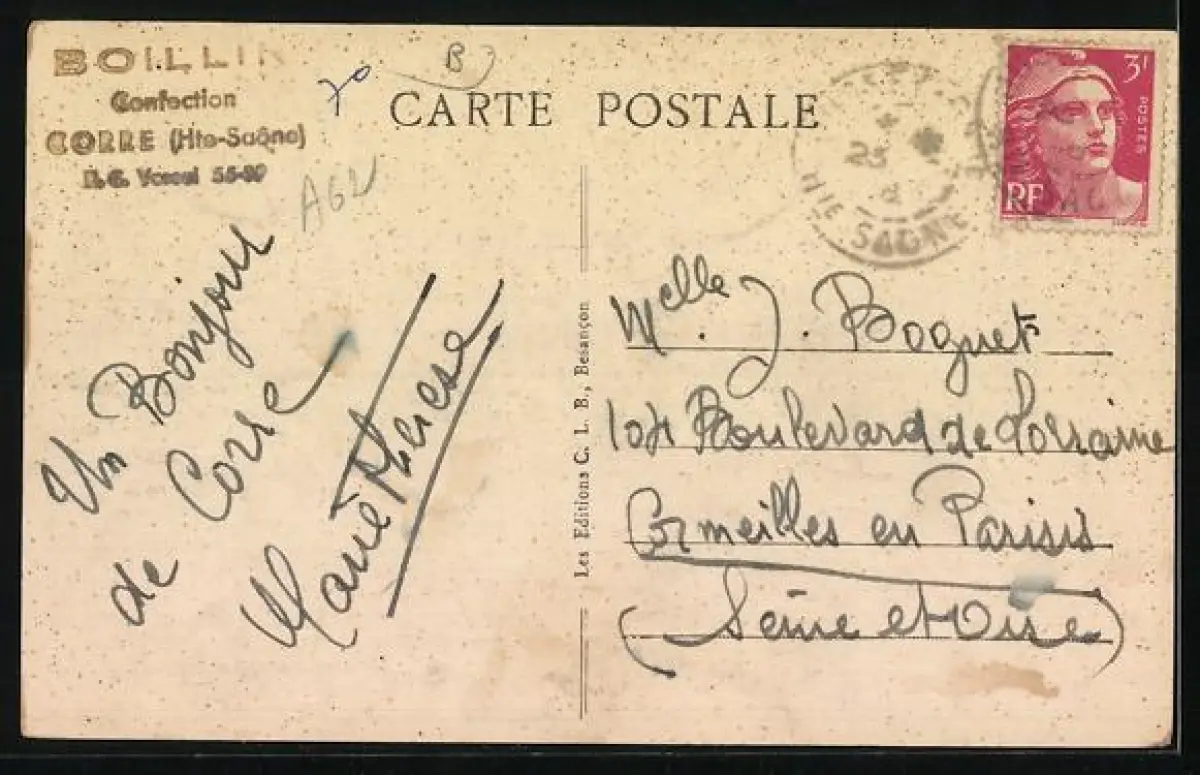 BOILLIN
Confection
CORRE (Hte-Saône)
R.C. Vesoul
70
B
CARTE POSTALE
A62
3F
POSTES
RF
25
HTE SAONE
Un Bonjour
de Corre
Marie Therese
Les Editions C. L. B., Besançon
Melle. J. Boguet
104 Boulevard de Lorraine
Cormeilles en Parisis
(Seine et Oise)